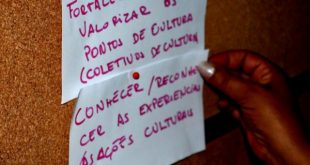 FORTALE
VALORIZAR OS
PONTOS DE CULTURA
(COLETIVOS DE CULTURA
CONHECER/RECONHE
CER AS EXPERIENCIAS
AS AÇÕES CULTURAIS